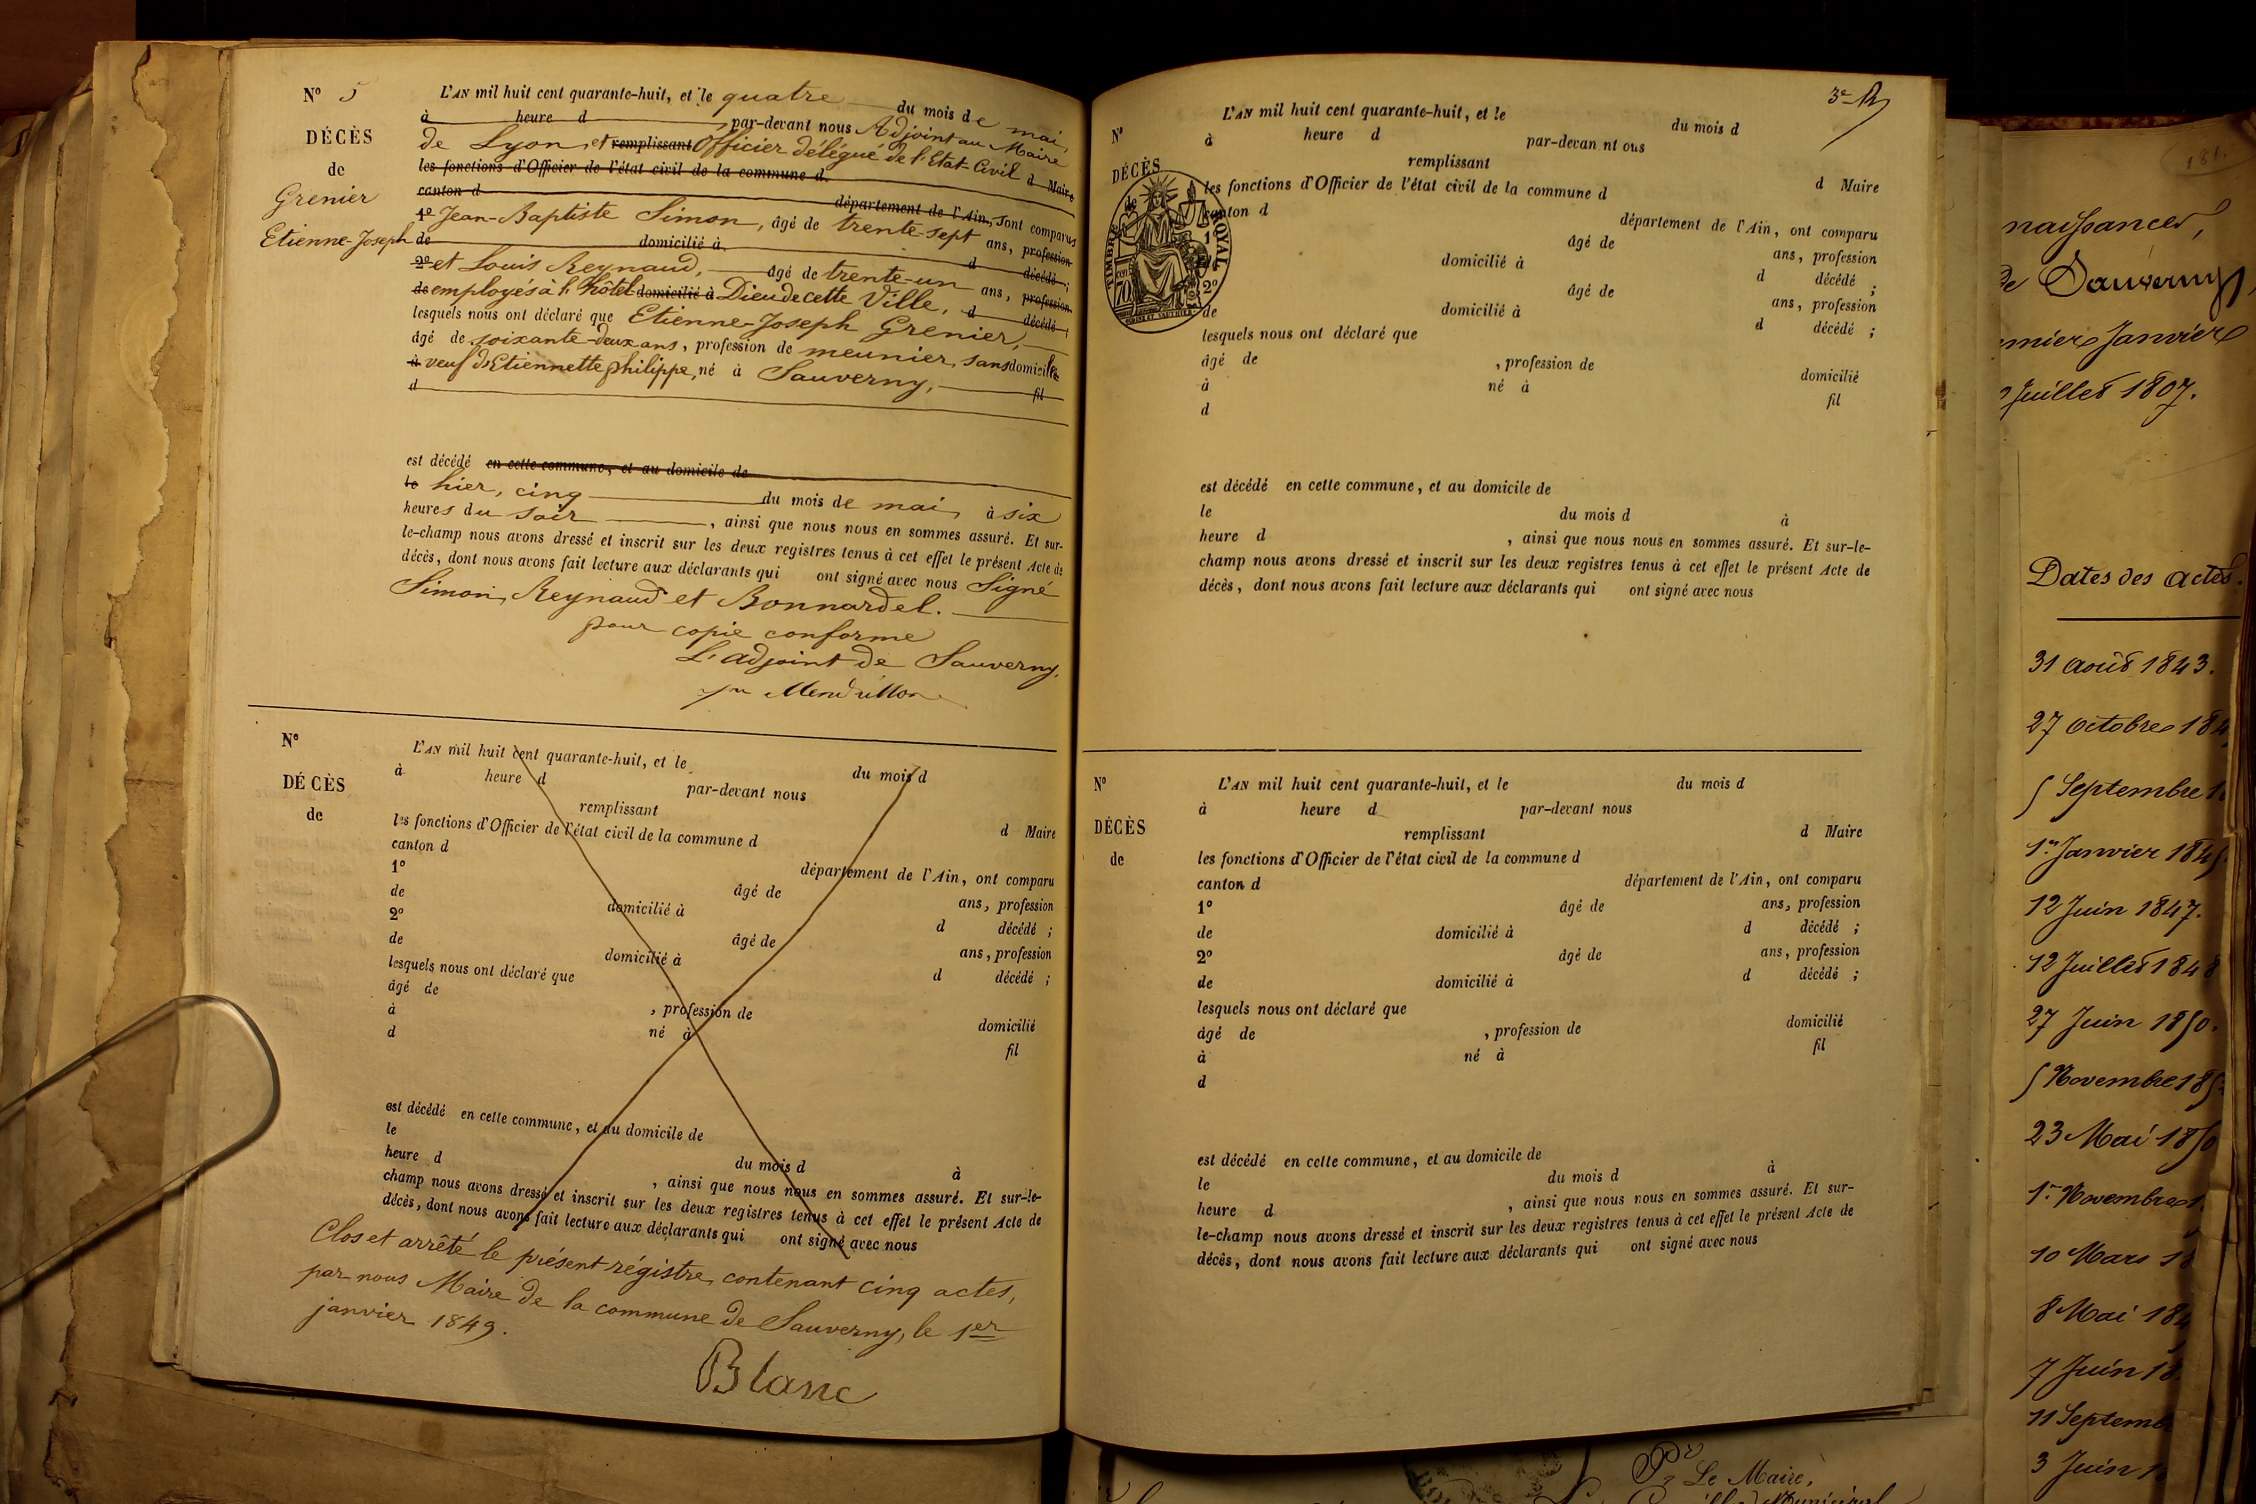 N° 5
DÉCÈS
de
Grenier
Etienne-Joseph
L'AN mil huit cent quarante-huit, et le quatre du mois de mai,
à heure d , par-devant nous Adjoint au Maire
de Lyon, et remplissant Officier délégué de l'Etat-Civil d Maire
les fonctions d'Officier de l'état civil de la commune d
canton d département de l'Ain, sont comparus
1° Jean-Baptiste Simon, âgé de trente-sept ans, profession
de domicilié à d décédé ;
2° et Louis Reynaud, âgé de trente-un ans, profession
de employés à l'hôtel domicilié à Dieu de cette Ville, d décédé ;
lesquels nous ont déclaré que Etienne-Joseph Grenier,
âgé de soixante-deux ans, profession de meunier, sans domicile
à veuf d'Etiennette philippe, né à Sauverny, fil
d
est décédé en cette commune, et au domicile de
le hier, cinq du mois de mai, à six
heures du soir , ainsi que nous nous en sommes assuré. Et sur-
le-champ nous avons dressé et inscrit sur les deux registres tenus à cet effet le présent Acte de
décès, dont nous avons fait lecture aux déclarants qui ont signé avec nous Signé
Simon, Reynaud et Bonnardel.
pour copie conforme
L'adjoint de Sauverny.
N°
DÉCÈS
de
L'AN mil huit cent quarante-huit, et le du mois d
à heure d par-devant nous
remplissant d Maire
les fonctions d'Officier de l'état civil de la commune d
canton d département de l'Ain, ont comparu
1° âgé de ans, profession
de domicilié à d décédé ;
2° âgé de ans, profession
de domicilié à d décédé ;
lesquels nous ont déclaré que
âgé de , profession de domicilié
à né à fil
d
est décédé en cette commune, et au domicile de
le du mois d à
heure d , ainsi que nous nous en sommes assuré. Et sur-le-
champ nous avons dressé et inscrit sur les deux registres tenus à cet effet le présent Acte de
décès, dont nous avons fait lecture aux déclarants qui ont signé avec nous
Clos et arrêté le présent régistre, contenant cinq actes,
par nous Maire de la commune de Sauverny, le 1er
janvier 1849.
Blanc
3e
N°
DÉCÈS
de
TIMBRE ROYAL
70
L'AN mil huit cent quarante-huit, et le du mois d
à heure d par-devan nt ous
remplissant d Maire
les fonctions d'Officier de l'état civil de la commune d
canton d département de l'Ain, ont comparu
1° âgé de ans, profession
de domicilié à d décédé ;
2° âgé de ans, profession
de domicilié à d décédé ;
lesquels nous ont déclaré que
âgé de , profession de domicilié
à né à fil
d
est décédé en cette commune, et au domicile de
le du mois d à
heure d , ainsi que nous nous en sommes assuré. Et sur-le-
champ nous avons dressé et inscrit sur les deux registres tenus à cet effet le présent Acte de
décès, dont nous avons fait lecture aux déclarants qui ont signé avec nous
N°
DÉCÈS
de
L'AN mil huit cent quarante-huit, et le du mois d
à heure d par-devant nous
remplissant d Maire
les fonctions d'Officier de l'état civil de la commune d
canton d département de l'Ain, ont comparu
1° âgé de ans, profession
de domicilié à d décédé ;
2° âgé de ans, profession
de domicilié à d décédé ;
lesquels nous ont déclaré que
âgé de , profession de domicilié
à né à fil
d
est décédé en cette commune, et au domicile de
le du mois d à
heure d , ainsi que nous nous en sommes assuré. Et sur-
le-champ nous avons dressé et inscrit sur les deux registres tenus à cet effet le présent Acte de
décès, dont nous avons fait lecture aux déclarants qui ont signé avec nous
181.
naissances,
de Sauverny,
Janvier
Juillet 1807.
Dates des actes.
31 août 1843.
27 octobre 184
5 Septembre 1
1er Janvier 184
12 Juin 1847.
12 Juillet 1848
27 Juin 1850.
5 Novembre 185
23 Mai 1850
1er Novembre 1
10 Mars 18
8 Mai 184
7 Juin 18
11 Septemb
3 Juin 1
Le Maire,